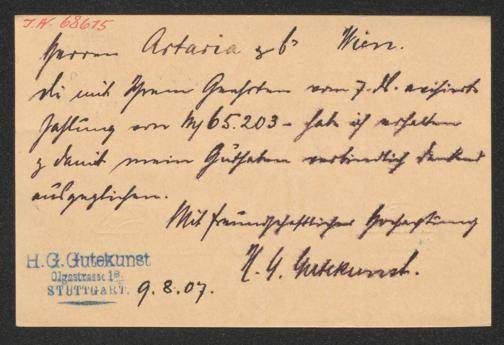 J.N. 68615
Herren Artaria & Co Wien.
Die mit Ihrem Geehrten vom 7. dt. avisierte
Zahlung von M 65.203 – habe ich erhalten
& damit mein Guthaben verbindlich dankend
ausgeglichen.
Mit freundschaftlicher Hochachtung
H. G. Gutekunst.
H. G. Gutekunst
Olgastrasse 1B
STUTTGART.
9.8.07.